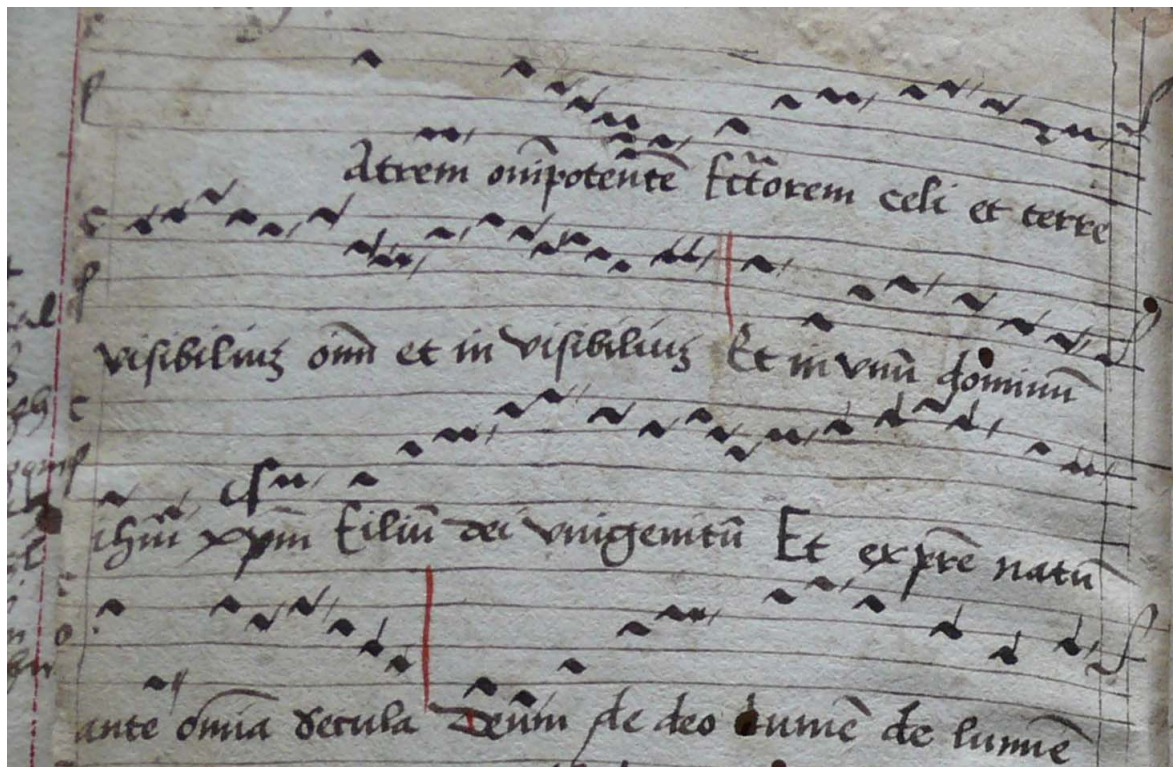 Atrem om̄potēn̄tē f̄ct̄orem celi et terre
visibiliuʒ om̄ et in visibiliuʒ Et in vnū dominū
ihm̄ xp̄m filiū dei vnigenitū Et ex pr̄e natū
ante om̄ia secula deūm de deo lumē de lumē